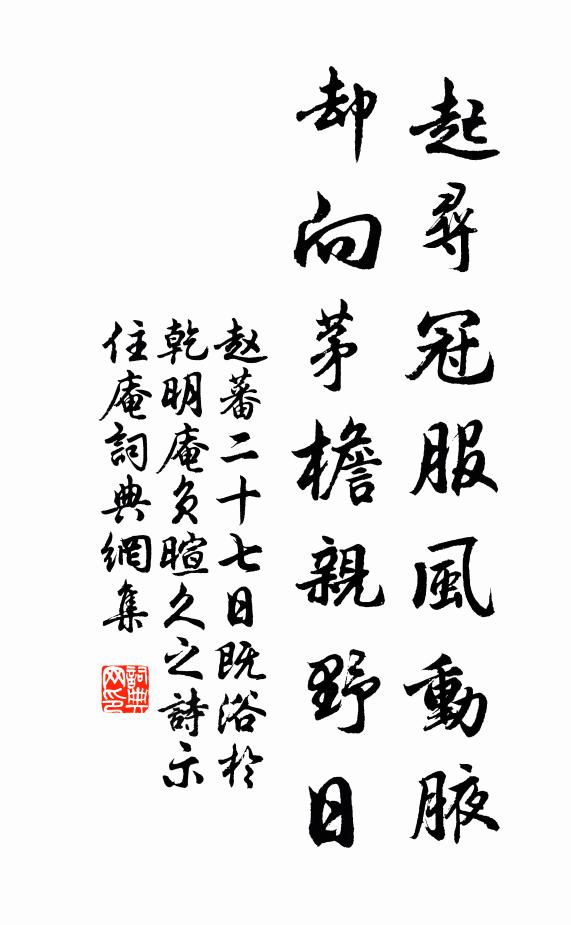 起尋冠服風動腋
却向茅檐親野日
赵蕃二十七日既浴於
乾明庵负暄久之詩示
住庵詞典網集
詞典
网印